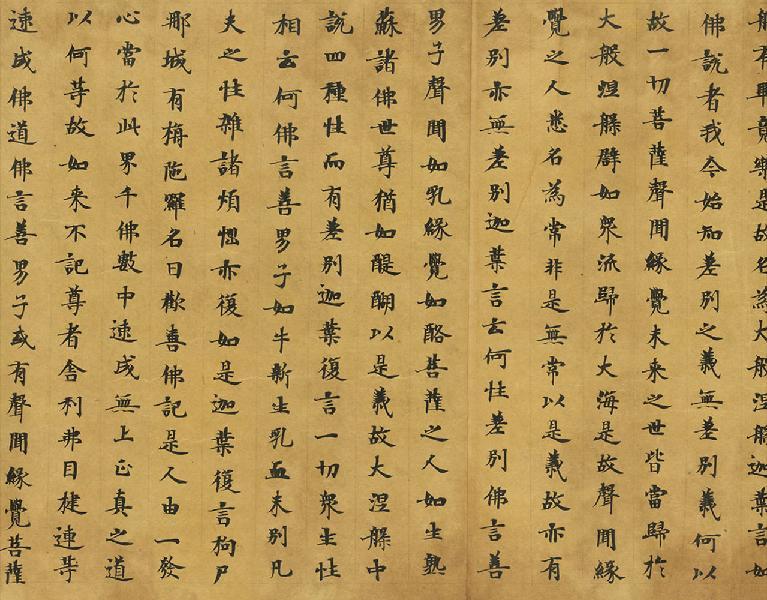 般有畢竟樂是故名為大般涅槃迦葉言如
佛說者我今始知差別之義無差別義何以
故一切菩薩聲聞緣覺未來之世皆當歸於
大般涅槃譬如眾流歸於大海是故聲聞緣
覺之人悉名為常非是無常以是義故亦有
差別亦無差別迦葉言云何性差別佛言善
男子聲聞如乳緣覺如酪菩薩之人如生熟
蘇諸佛世尊猶如醍醐以是義故大涅槃中
說四種性而有差別迦葉復言一切眾生性
相云何佛言善男子如牛新生乳血未別凡
夫之性雜諸煩惱亦復如是迦葉復言拘尸
那城有栴陁羅名曰歡喜佛記是人由一發
心當於此界千佛數中速成無上正真之道
以何等故如來不記尊者舍利弗目揵連等
速成佛道佛言善男子或有聲聞緣覺菩薩